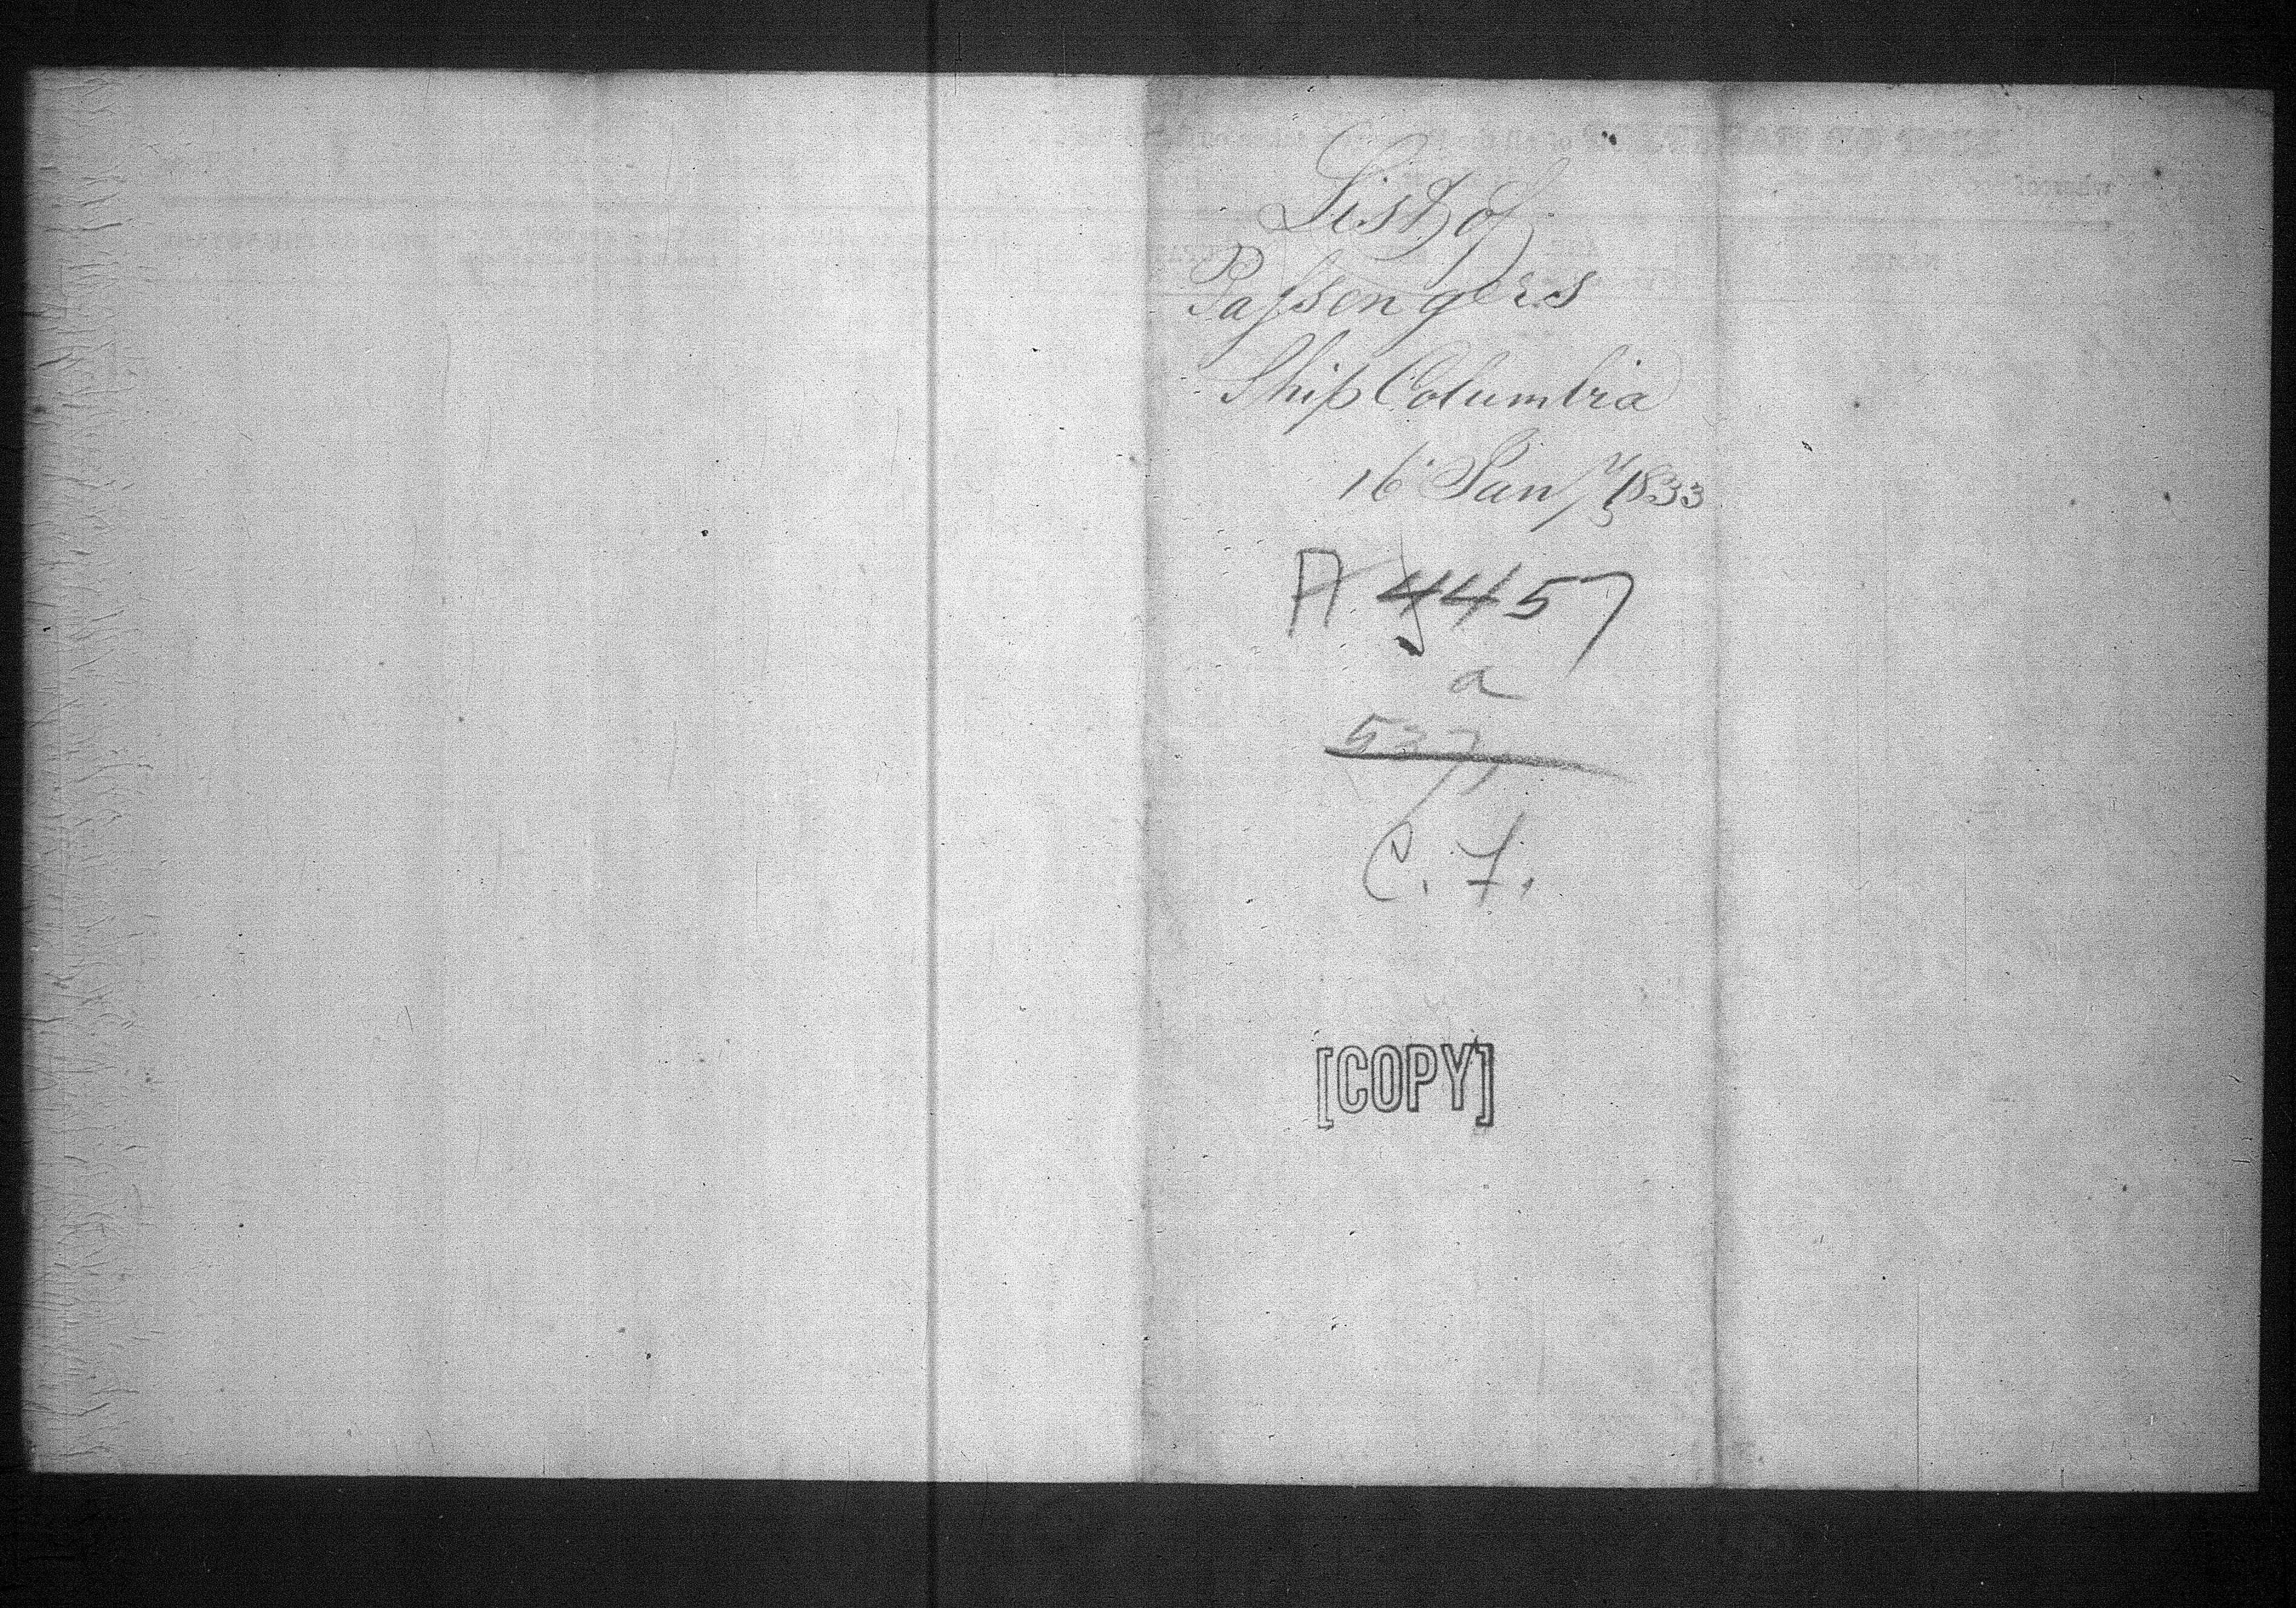 List of
Passengers
Ship Columbia
16 Jany 1833
A 4457
a
537
C. F.
[COPY]